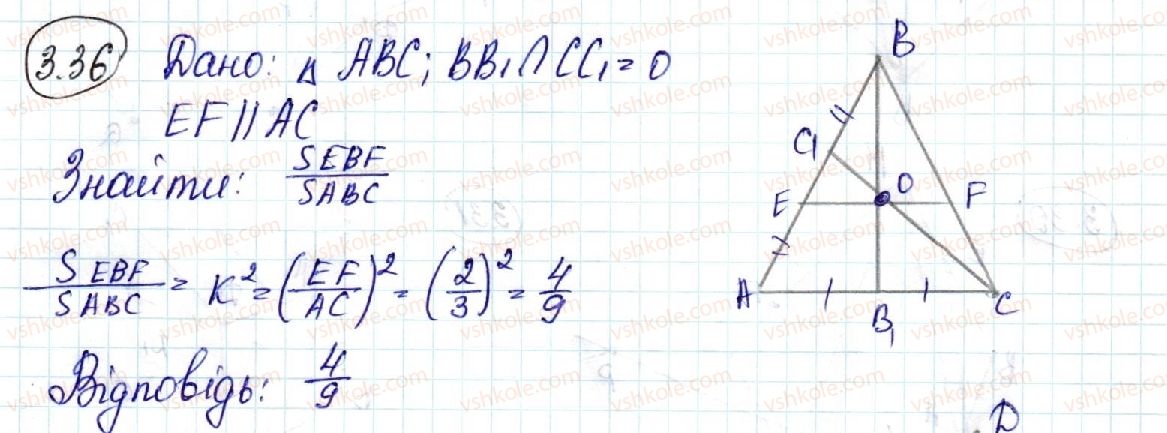 3.36 Дано: △ ABC; BB₁∩CC₁ = O
EF || AC
Знайти: SEBF/SABC
SEBF/SABC = K² = (EF/AC)² = (2/3)² = 4/9
Відповідь: 4/9
B
C₁
O
E
F
A
B₁
C
D
vshkole.com